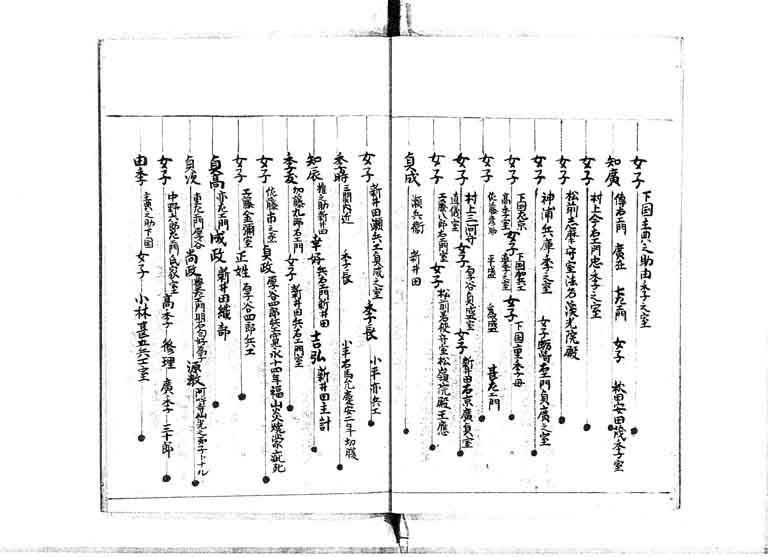 女子 下国主典之助由季之室
知廣 傳右エ門 廣益 七左エ門 女子 松田安田茂季子室
女子 村上令右エ門忠季之室
女子 松前志摩守室法名渓光院殿
女子 神浦兵庫季之室 女子 蛎崎右エ門貞廣之室
女子 下国左京高季室 女子 下国加兵エ直季之室 女子 下国重季母
女子 佐藤彦助 季盛 為盛 甚左エ門
女子 村上三河守直儀室 女子 厚谷貞盛室 女子 新井田右京廣貞室
女子 工藤八郎右エ門室 女子 松前若狭守室松嶺院殿
貞成 瀬兵衛 新井田
女子 新井田瀬兵エ貞成之室 季長 小平亦兵エ
季時 三関内近 季長 小平右馬允慶安二年切腹
知辰 権之助新井田 幸好 兵右エ門新井田 吉弘 新井田主計
季友 加藤九郎右エ門 女子 新井田兵右エ門室
女子 佐藤市之丞 貞政 厚谷四郎兵エ寛永十四年福山炎焼蒙疵死
女子 工藤金彌室 正姓 厚谷四郎兵エ
貞高 亦左エ門 成政 新井田織部
貞次 重左エ門厚谷 尚政
女子 中野六郎左エ門氏家室 高季 修理 廣季 三十郎
由季 主典之助下国 女子 小林甚五兵エ室